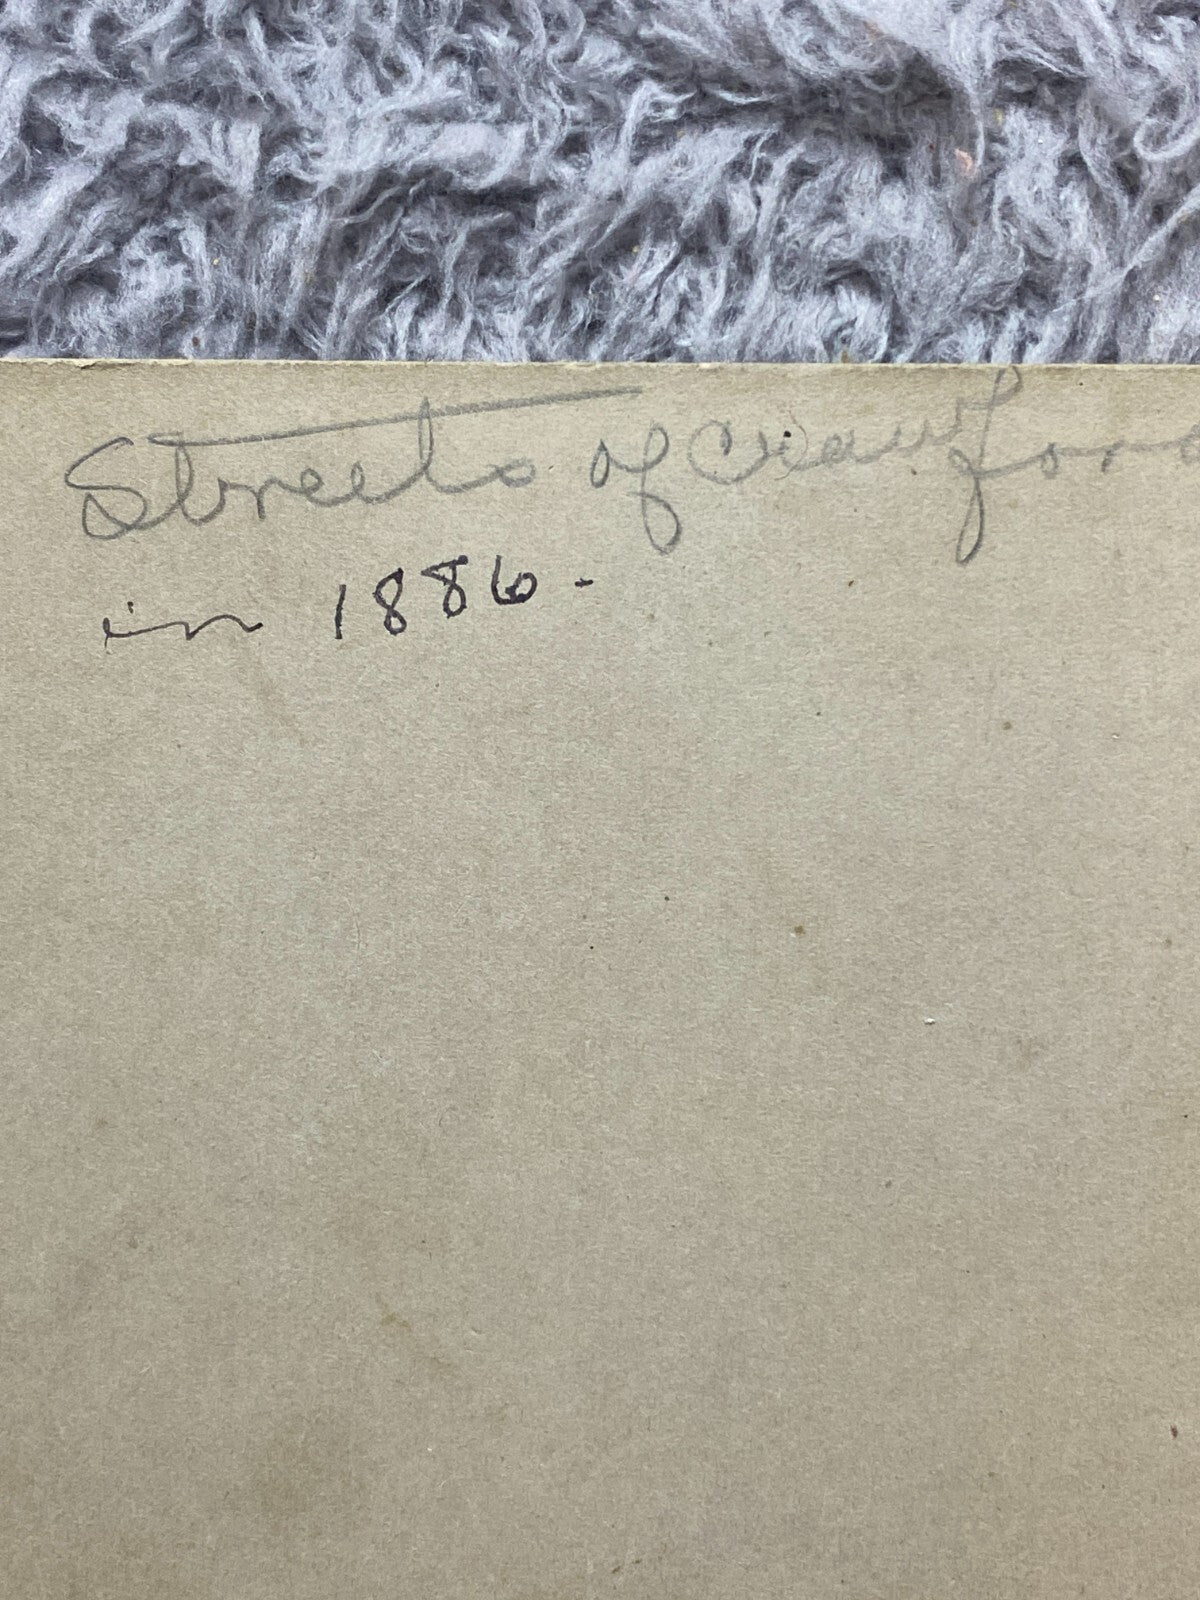 Streets of Crawford
in 1886.-